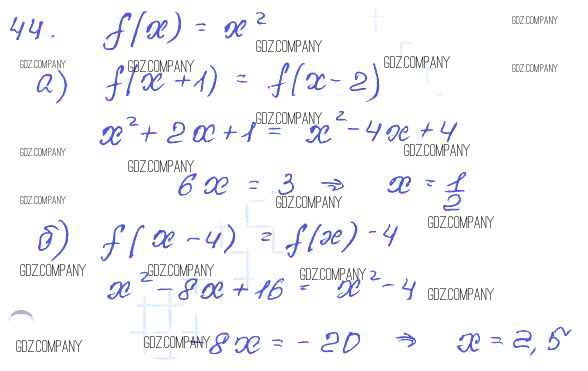 44. f(x) = x²
GDZ.COMPANY GDZ.COMPANY
GDZ.COMPANY GDZ.COMPANY GDZ.COMPANY GDZ.COMPANY
а) f(x+1) = f(x-2)
GDZ.COMPANY
x² + 2x + 1 = x² - 4x + 4
GDZ.COMPANY GDZ.COMPANY
GDZ.COMPANY
6x = 3 ⇒ x = 1/2
GDZ.COMPANY GDZ.COMPANY
GDZ.COMPANY
б) f(x-4) = f(x) - 4
GDZ.COMPANY GDZ.COMPANY GDZ.COMPANY
x² - 8x + 16 = x² - 4
GDZ.COMPANY
-8x = -20 ⇒ x = 2,5
GDZ.COMPANY GDZ.COMPANY